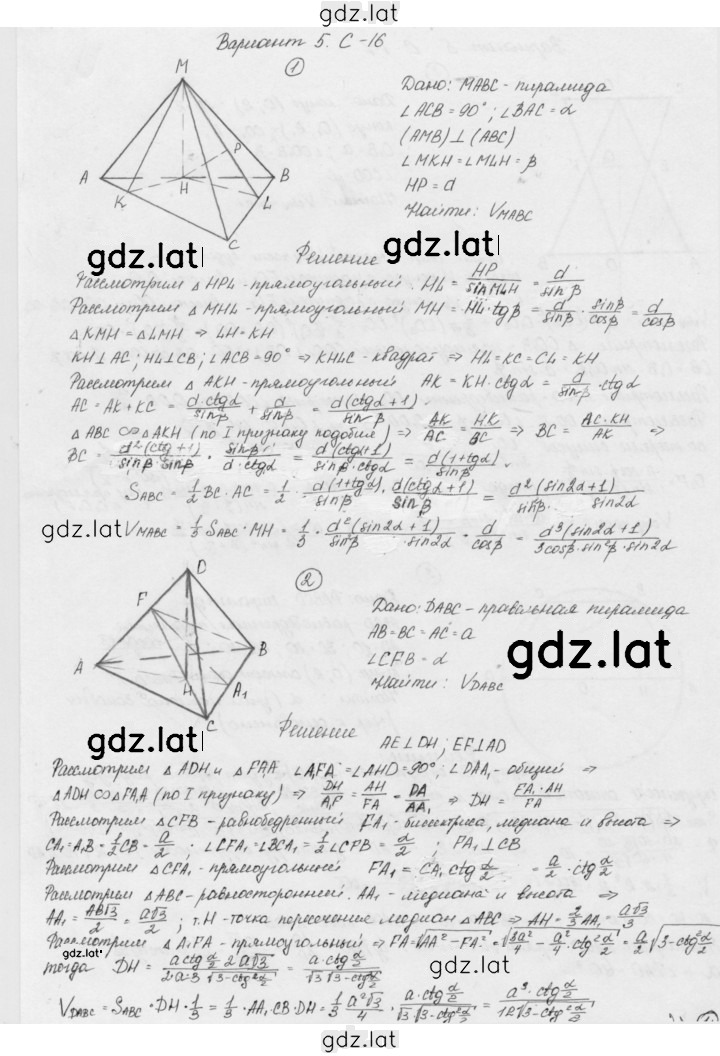 gdz.lat
Вариант 5. С-16
1
Дано: MABC - пирамида
∠ACB = 90°; ∠BAC = α
(AMB) ⊥ (ABC)
∠MKH = ∠MLH = β
HP = d
Найти: V_MABC
M
P
A
H
B
K
L
C
gdz.lat
Решение
Рассмотрим △HPL - прямоугольный. HL = HP/sin MLH = d/sin β
Рассмотрим △MHL - прямоугольный MH = HL·tgβ = d/sinβ · sinβ/cosβ = d/cosβ
△KMH = △LMH ⇒ LH = KH
KH ⊥ AC; HL ⊥ CB; ∠ACB = 90° ⇒ KHLC - квадрат ⇒ HL = KC = CL = KH
Рассмотрим △AKH - прямоугольный AK = KH·ctgα = d/sinβ · ctgα
AC = AK + KC = d·ctgα/sinβ + d/sinβ = d(ctgα+1)/sinβ
△ABC ∾ △AKH (по I признаку подобия) ⇒ AK/AC = HK/BC ⇒ BC = AC·KH/AK ⇒
BC = d²(ctgα+1)/sinβ·sinβ · sinβ/d·ctgα = d(ctgα+1)/sinβ·ctgα = d(1+tgα)/sinβ.
S_ABC = 1/2 BC·AC = 1/2 · d(1+tgα)/sinβ · d(ctgα+1)/sinβ = d²(sin2α+1)/sin²β · sin2α
gdz.lat
V_MABC = 1/3 S_ABC·MH = 1/3 · d²(sin2α+1)/sin²β · sin2α · d/cosβ = d³(sin2α+1)/3cosβ·sin²β·sin2α
2
Дано: DABC - правильная пирамида
AB = BC = AC = a
∠CFB = α
gdz.lat
Найти: V_DABC
D
F
B
A
H
A₁
C
gdz.lat
Решение
AE ⊥ DH; EF ⊥ AD
Рассмотрим △ADH и △FA₁A ∠A₁FA = ∠AHD = 90°; ∠DAA₁ - общий ⇒
△ADH ∾ △FA₁A (по I признаку) ⇒ DH/A₁F = AH/FA = DA/AA₁ ⇒ DH = FA₁·AH/FA
Рассмотрим △CFB - равнобедренный FA₁ - биссектриса, медиана и высота ⇒
CA₁ = A₁B = 1/2 CB = a/2; ∠CFA₁ = ∠BCA₁ = 1/2 ∠CFB = α/2; FA₁ ⊥ CB
Рассмотрим △CFA₁ - прямоугольный FA₁ = CA₁ ctg α/2 = a/2 · ctg α/2
Рассмотрим △ABC - равносторонний. AA₁ - медиана и высота ⇒
AA₁ = AB√3/2 = a√3/2; т.H - точка пересечение медиан △ABC ⇒ AH = 2/3 AA₁ = a√3/3
Рассмотрим △A₁FA - прямоугольный ⇒ FA = √AA₁² - FA₁² = √3a²/4 - a²/4·ctg² α/2 = a/2 √3-ctg² α/2
gdz.lat
тогда DH = a ctg α/2 2a√3/2·a·3 √3-ctg² α/2 = a·ctg α/2/√3 √3-ctg² α/2
gdz.lat
V_DABC = S_ABC·DH·1/3 = 1/3 · AA₁·CB·DH = 1/3 a²√3/4 · a·ctg α/2/√3 √3-ctg² α/2 = a³·ctg α/2/12√3-ctg² α/2
gdz.lat